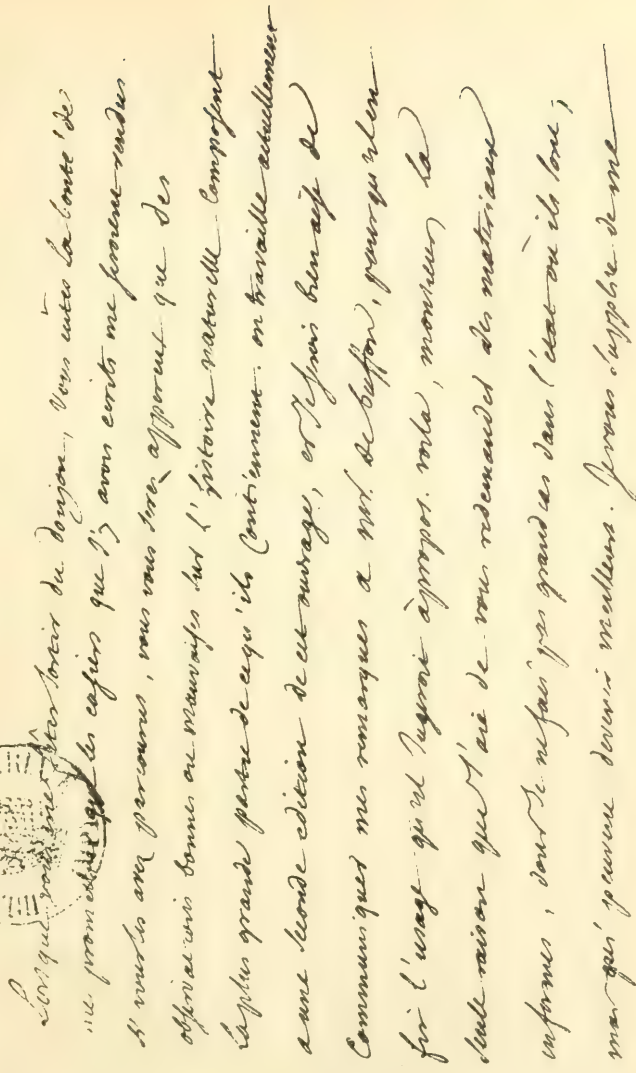 Lorsque vous me fites sortir du donjon, vous eutes la bonté de
me promettre que les cayiers que j'y avois ecrits me seroient rendus.
si vous les avez parcourus, vous vous serés apperceu que des
observations bonnes ou mauvaises sur l'histoire naturelle composent
la plus grande partie de ce qu'ils contiennent. on travaille actuellement
a une seconde edition de cet ouvrage, et je serois bien aise de
communiquer mes remarques a mr. de buffon, pour qu'il en
fit l'usage qu'il jugeroit àpropos. voila, monsieur, la
seule raison que j'aie de vous redemander des materiaux
informes, dont je ne fais pas grand cas dans l'état où ils sont,
mais qui peuvent devenir meilleurs. je vous supplie de me